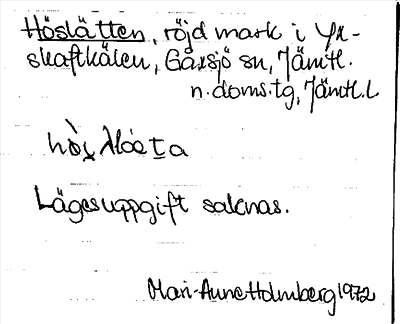 Höslåtten, röjd mark i Yx-
skaftkälen, Gåxsjö sn, Jämtl.
n. doms.tg, Jämtl.l
Lägesuppgift saknas.
Mari-Anne Holmberg 1972